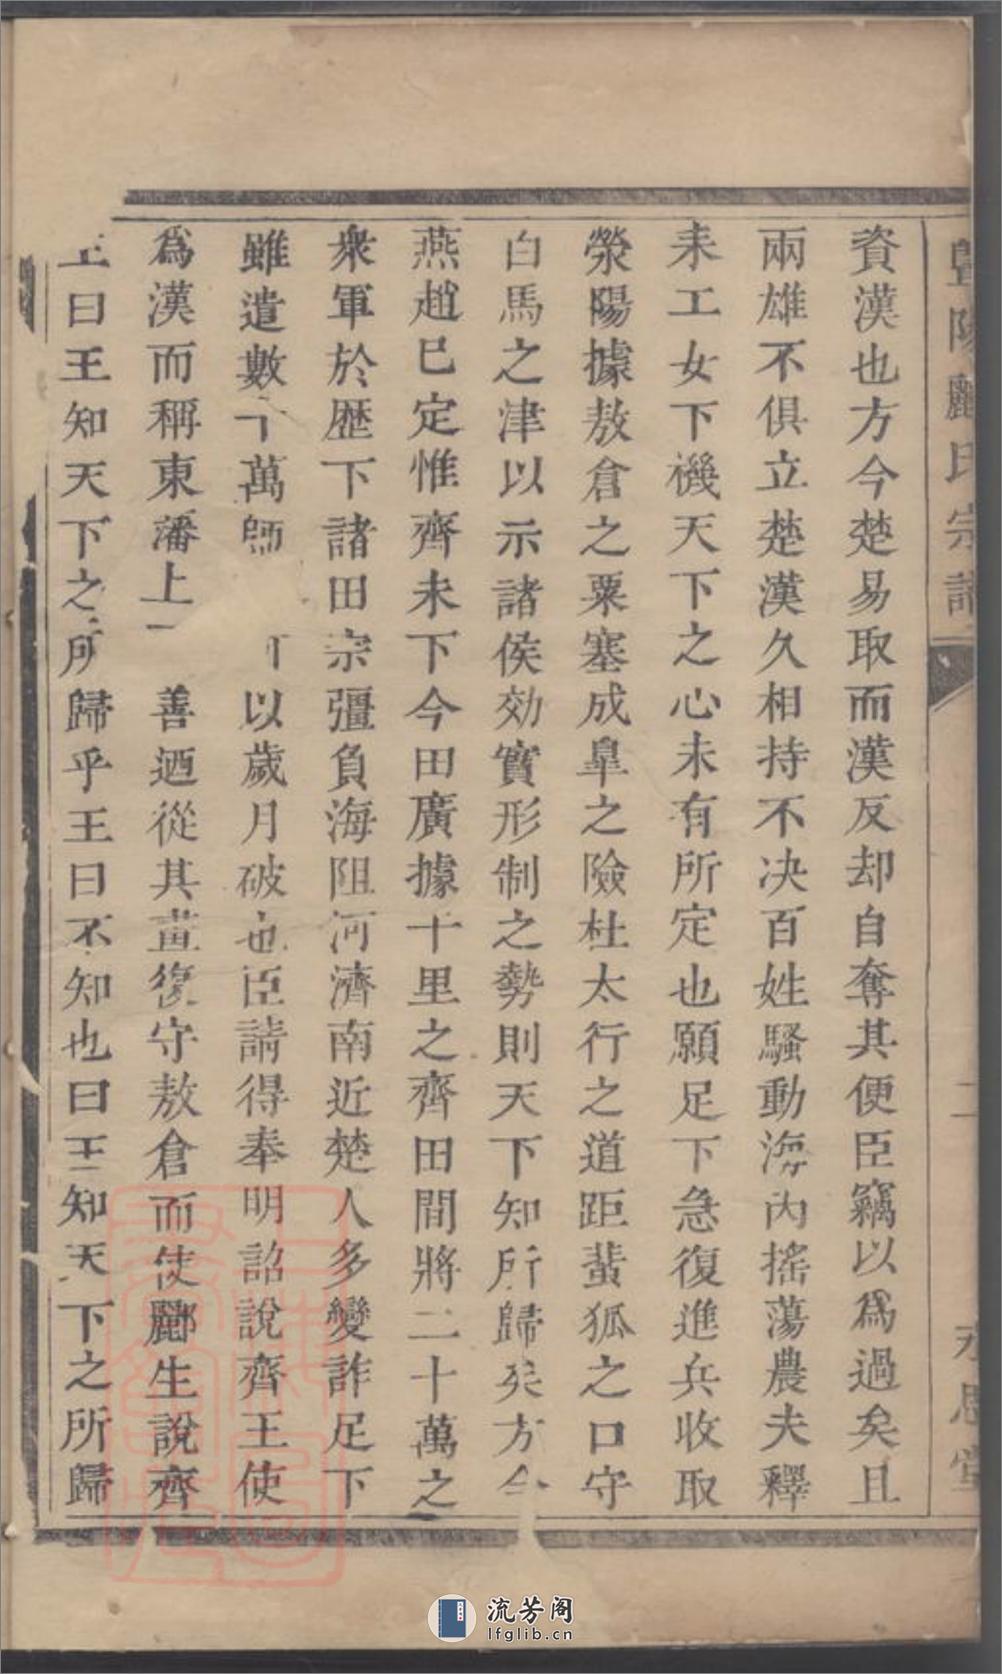 暨陽酈氏宗譜 二 永思堂
資漢也方今楚易取而漢反却自奪其便臣竊以為過矣且
兩雄不俱立楚漢久相持不决百姓騷動海內搖蕩農夫釋
耒工女下機天下之心未有所定也願足下急復進兵收取
滎陽據敖倉之粟塞成臯之險杜太行之道距蜚狐之口守
白馬之津以示諸侯効實形制之勢則天下知所歸矣方今
燕趙已定惟齊未下今田廣據十里之齊田間將二十萬之
衆軍於歷下諸田宗彊負海阻河濟南近楚人多變詐足下
雖遣數十萬師以歲月破也臣請得奉明詔說齊王使
為漢而稱東藩上善迺從其畫復守敖倉而使酈生說齊
王曰王知天下之所歸乎王曰不知也曰王知天下之所歸
流芳阁
lfglib.cn